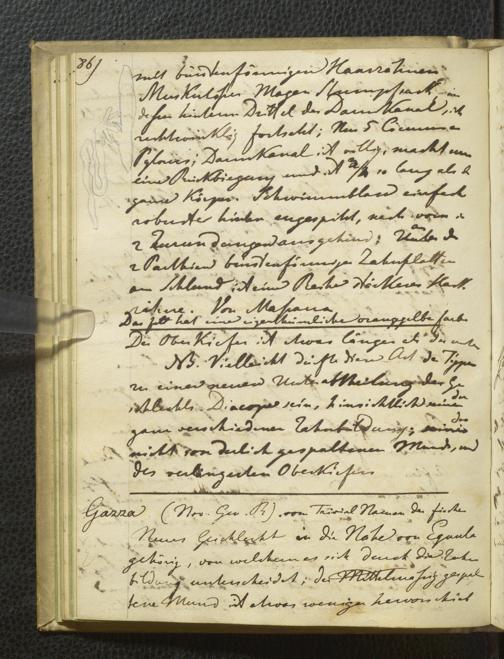 86)
mit bürstenförmigen Haarzähnen
Muskulöser Magen Stumpfsack, in
dessen hintern Drittel der Darmkanal, sich
rechtwinklig fortsetzt; Nur 5 Coecum am
Pylorus; Darmkanal ist völlig, macht nur
eine Rückbiegung und ist so lang als der
ganze Körper. Schwimmblase einfach
robuste hinten zugespitzt, nach vorn in
2 Zurundungen ausgehend;
2 Parthien bürstenförmiger Zahnplatten
am Schlund ist eine Reihe Höckeres
Von Massaua
Das Fett hat eine eigenthümliche orangegelbe Farbe
Der Oberkiefer ist etwas länger als der unter
NB. Vielleicht dürfte diese Art der Typus
zu einer neuen Unterabtheilung des Ge
schlechts Diacope sein, hinsichtlich seiner
ganz verschiedenen Zahnbildung; des
nicht sonderlich gespaltenen Mundes, und
des verlängerten Oberkiefers
Gazza (Nov. Gen. R.) von Trivial Namen der Fische
Neues Geschlecht in die Nähe von Equula
gehörig, von welchem es sich durch die Zahn
bildung unterscheidet; der Mittelmässig gespal
tene Mund ist etwas weniger hervorschieb